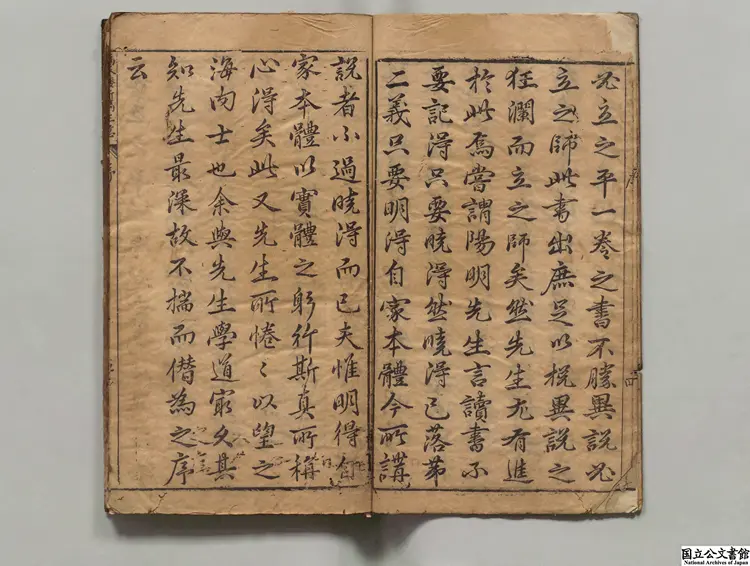 必立之平一卷之書不勝異說必
立之師此書出庶足以柷異說之
狂瀾而立之師矣然先生尤有進
於此焉嘗謂陽明先生言讀書不
要記得只要曉得然曉得已落第
二義只要明得自家本體今所講
說者不過曉得而已夫惟明得自
家本體以實體之躬行斯真所稱
心得矣此又先生所惓〻以望之
海內士也余與先生學道最久其
知先生最深故不揣而僭為之序
云
序
国立公文書館
National Archives of Japan